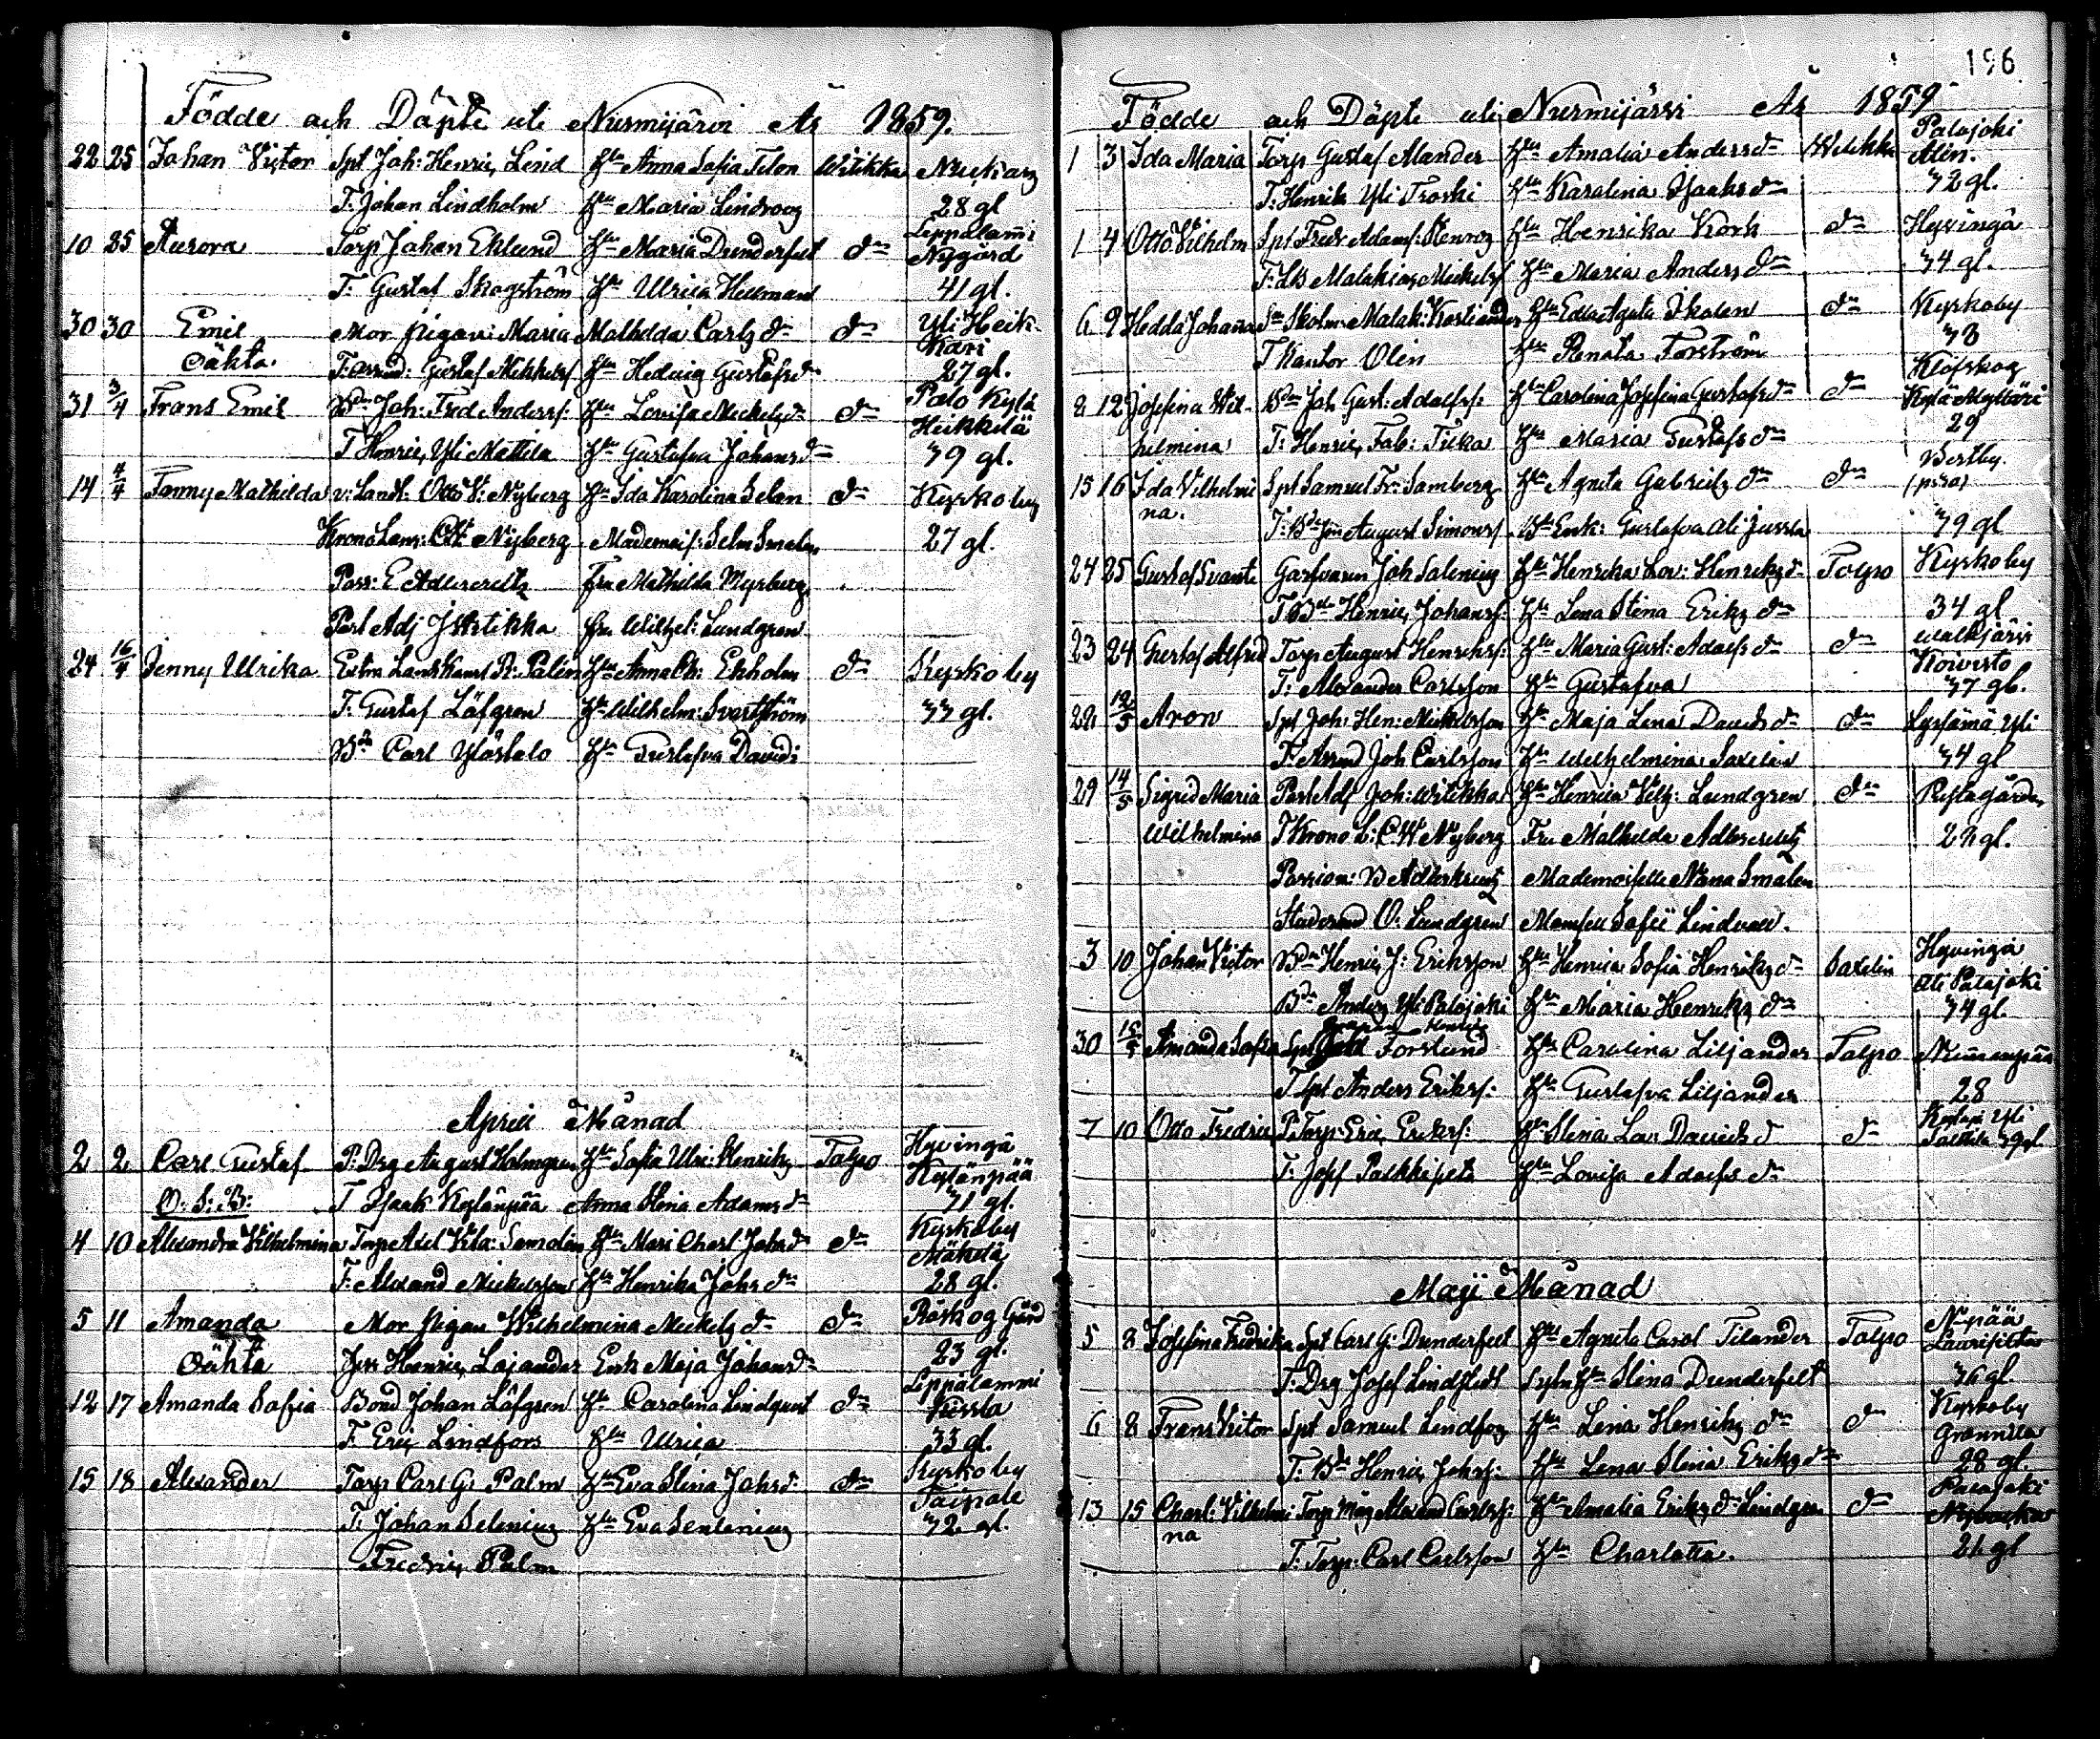 Födde och Döpte uti Nurmijärvi År 1859.
22 25 Johan Victor Spt Joh: Henric Lind Hu Anna Sofia Telon Witikka
T. Johan Lindholm Hu Maria Lindroos 28 gl
10 25 Aurora Torp Johan Eklund Hu Maria Dunderfelt dn Leppälammi Nygård
T: Gustaf Skogström Hu Ulrica Hellman 41 gl.
30 30 Emil Mor pigan Maria Mathilda Carls dr dn Yli Heik-
kari
oäkta. Gustaf Hu Hedvig Gustafs dr 27 gl.
31 3/4 Frans Emil Bdn Joh: Fred Anderss: Hu Lovisa Mickels dr dn Palo Kylä
Heikkilä
T Henric Yli Mattila Hu Gustafva Johans dr 39 gl.
14 4/4 Fanny Mathilda v: Landt: Otto V: Nyberg Hu Ida Karolina Selan dn Kyrkoby
Krono Lens: Nyberg Mademois: Selm Smalen 27 gl.
Poss: E Adlercreutz Fru Mathilda Myrberg
Past Adj J Witikka Fru Wilhel: Lundgren
24 16/4 Jenny Ulrika Extra Landt Kamr R: Palin Hu Anna Ch: Ekholm dn Kyrkoby
T. Gustaf Löfgren Hu Wilhelm: Svartström 33 gl.
Bdn Carl Ylöstalo Hu Gustafva Davids
April Månad
2 2 Carl Gustaf P: Drg August Holmgren Hu Sofia Ulri: Henriks Talpo Hyvingä
Kytänpää
O: S: B: T Isaak Kytänpää Anna Stina Adams dr 31 gl.
4 10 Alexandra Vilhelmina Torp Axel Vila: Samolin Hu Mari Charl Johs dr dn Kyrkoby
Mähelä
T. Alexand Mickelsson Hu Henrika Johs dr 28 gl.
5 11 Amanda Mor Pigan Wilhelmina Mickels dr dn Råskog Gård
oäkta Henric Lojander Enk Maja Johans dr 23 gl.
12 17 Amanda Sofia Bond Johan Löfgren Hu Carolina Lindqvist dn Leppälammi
Jussla
T. Eric Lindfors Hu Ulrica 33 gl.
15 18 Alexander Torp Carl G: Palm Hu Eva Stina Johs d: dn Kyrkoby
Taipale
T. Johan Selenius Hu Eva Selenius 32 gl.
Fredric Palm
196.
Födde och Döpte uti Nurmijärvi År 1859
1 3 Ida Maria Torp Gustaf Alander Hu Amalia Anders dr Witikka Palojoki
Alin.
T: Henrik Yli Troski Hu Karolina Isaaks dr 32 gl.
1 4 Otto Vilhelm Spt Fredr Adamss: Stenroos Hu Henrika Kork dn Hyvingä
T: Malakias Mickels Hu Maria Anders dr 34 gl.
6 9 Hedda Johanna Skolm: Malak: Korsiander Hu Edla Agata Skalen dn Kyrkoby
T Kantor Olin Hu Renata Forström 38
8 12 Josefina Wil- Bdn Joh Gust: Adolfs: Hu Carolina Josefina Gustafs dr dn Klöfskog
Kylä Mylläri
helmina T: Henric Fab: Tilka Hu Maria Gustafs dr 29
15 16 Ida Vilhelmi Spt Samuel Fr: Samberg Hu Agneta Gabriels dr dn Vertby.
na. T: Bdn August Simons Enk: Gustafva Ali Jussla 39 gl
24 25 Gustaf Svante Garfvaren Joh Salenius Hu Henrika Lov: Henriks dr Talpo Kyrkoby
T Bdn Henric Johanss: Hu Lena Stina Eriks dr 34 gl
23 24 Gustaf Alfred Torp August Henrikss: Hu Maria Gust: Adolfs dr dn Walkjärvi
Koivisto
T: Alexander Carlsson Hu Gustafva 37 gl.
22 12/5 Aron Spt Joh: Hen: Mickelsson Hu Maja Lena Davids dr dn Yli
T. Arrend Joh Carlsson Hu Wilhelmina Saxelin 34 gl
29 14/5 Sigrid Maria Past Adj Joh: Witikka Hu Henrica Vilh: Lundgren dn Prestgården
Wilhelmina T Krono L: Nyberg Fru Mathilda Adlercreutz 22 gl.
Adlerkreutz Mademoiselle Nana Smalen
Studerand O. Lundgren Mamsell Sofie Lindvall.
3 10 Johan Victor Bdn Henric J: Eriksson Hu Henrica Sofia Henriks dr Saxelin Hyvingä
Ali Palojoki
Bdn Anders Yli Palojoki Hu Maria Henriks dr 34 gl.
30 15/5 Amanda Sofia Spt Forslund Hu Carolina Liljander Talpo Nummenpää
T Spt Anders Erikss: Hu Gustafva Liljander 28
7 10 Otto Fredric P Torp: Eric Erikss: Hu Stina Lov: Davids d dn Yli
39 gl
T. Josef Hu Lovisa Adolfs dr
Maji Månad
5 8 Josefina Fredrika Spt Carl G: Dunderfelt Hu Agneta Carol Tilander Talpo N:pää
T: Drg Josef Lindstedt Hu Stina Dunderfelt 36 gl
6 8 Frans Victor Spt Samuel Lindfors Hu Lena Henriks dr dn Kyrkoby
T. Bdn Henric Johss: Hu Lena Stina Eriks dr 28 gl.
13 15 Charl: Vilhelmi- Torp Måg Alexand Carlss: Hu Amalia Eriks dr Lindgren dn Palojoki
na T. Torp: Carl Carlsson Hu Charlotta. 21 gl